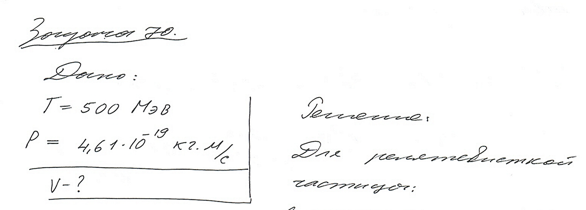 Задача 70.
Дано:
T = 500 МэВ
P = 4,61·10⁻¹⁹ кг·м/с
V - ?
Решение:
Для релятивисткой
частицы: